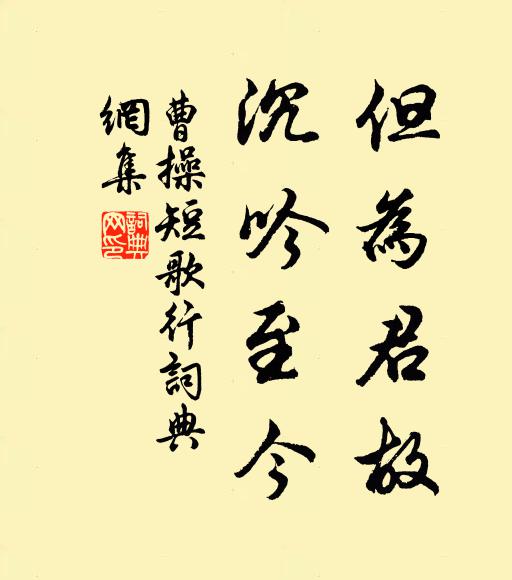 但為君故
沉吟至今
曹操短歌行詞典
網集
詞典網印